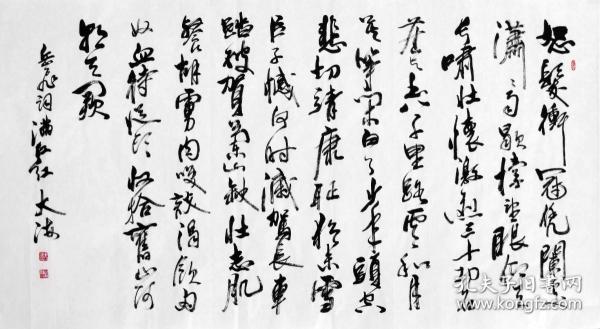 怒髮衝冠凭闌處
瀟瀟雨歇擡望眼仰天
長嘯壯懷激烈三十功名
塵與土八千里路雲和月
莫等閑白了少年頭空
悲切靖康耻猶未雪
臣子憾何時滅駕長車
踏破賀蘭山缺壯志肌
餐胡虜肉笑談渴飲匈
奴血待從頭收拾舊山河
朝天闕
岳飛詞滿江红 大海
孔夫子旧书网
www.kongfz.com